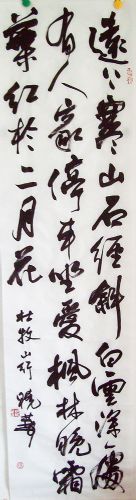 遠上寒山石徑斜白雲深處
有人家停車坐愛楓林晚霜
葉紅於二月花
杜牧山行